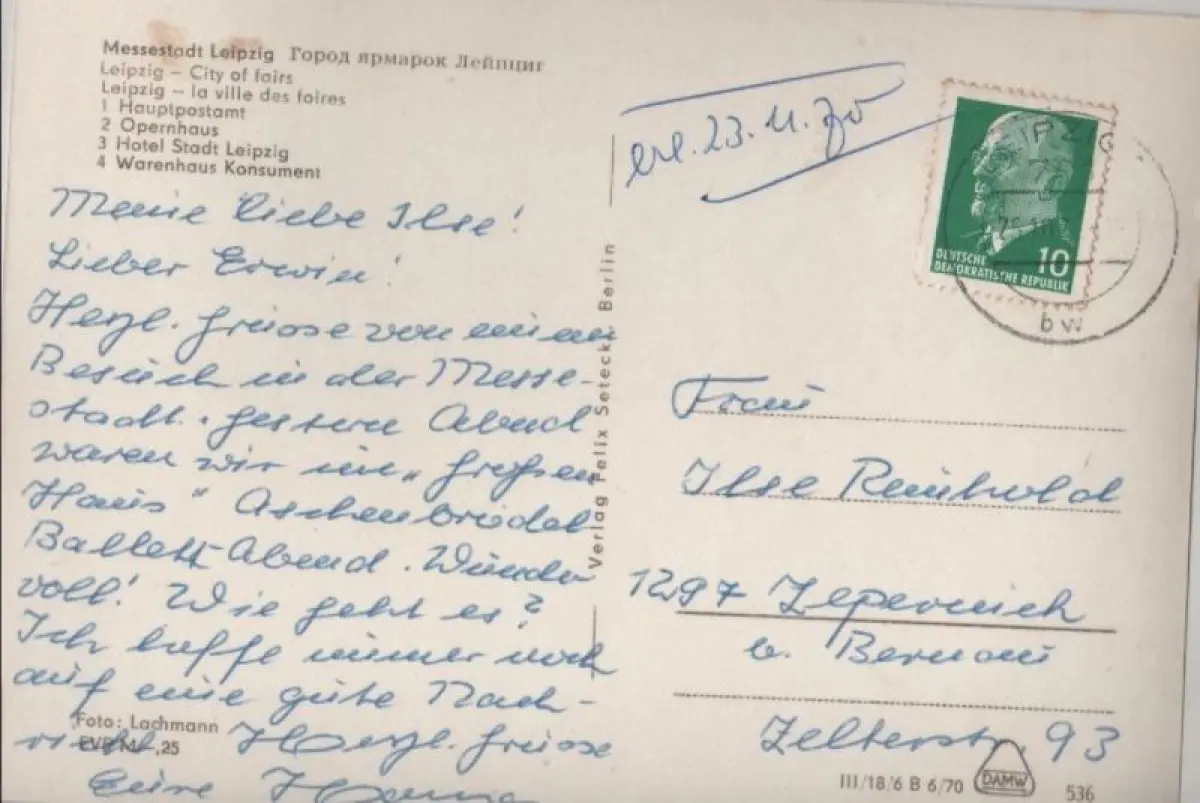 Messestadt Leipzig Город ярмарок Лейпциг
Leipzig – City of fairs
Leipzig – la ville des foires
1 Hauptpostamt
2 Opernhaus
3 Hotel Stadt Leipzig
4 Warenhaus Konsument
Meine liebe Ilse!
Lieber Erwin!
Herzl. Grüsse von einem
Besuch in der Messe-
stadt. Gestern Abend
waren wir im „Großen
Haus" Aschenbrödel
Ballett-Abend. Wunder
voll! Wie geht es?
Ich hoffe immer noch
auf eine gute Nach-
richt. Herzl. Grüsse
Eure
Foto: Lachmann
EVP M ,25
Verlag Felix Setecki Berlin
erl. 23.11.70
DEUTSCHE
DEMOKRATISCHE REPUBLIK
10
bw
Frau
Ilse Reinhold
1297 Zepernick
b. Bernau
Zelterstr. 93
III/18/6 B 6/70
DAMW
536